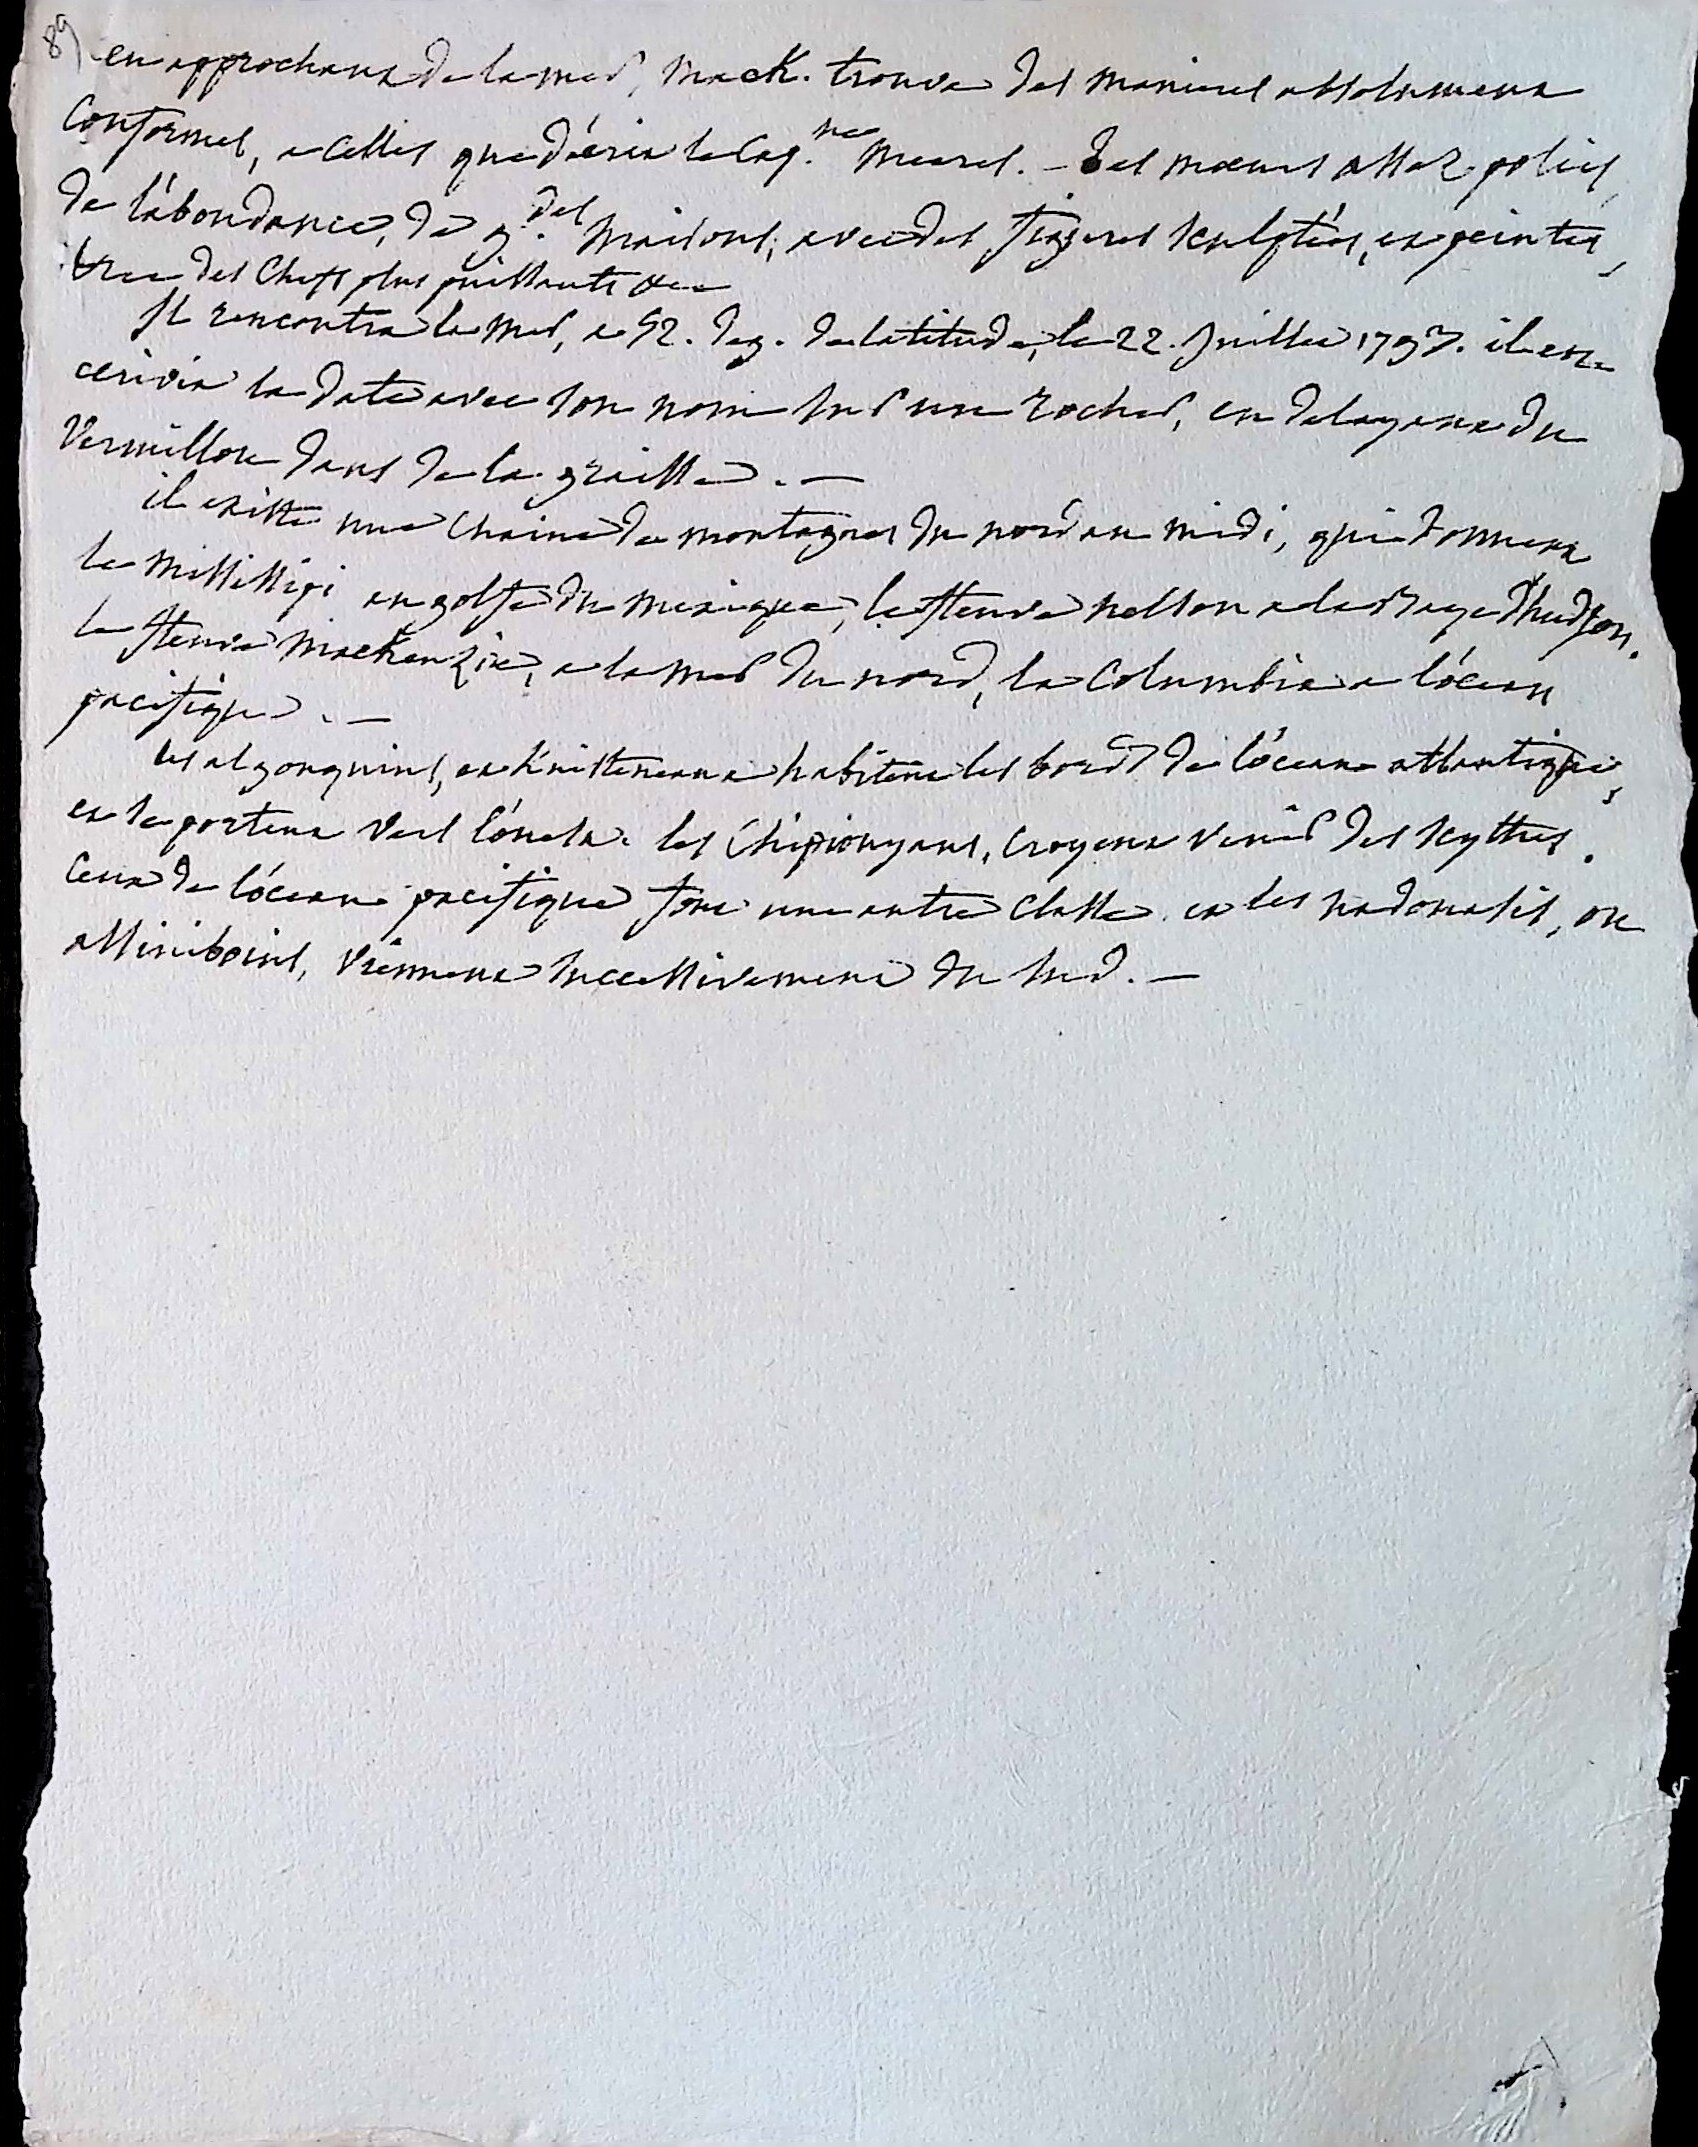 89
en approchant de la mer, Mack. trouva des manieres absolument
conformes, a celles que décrit le Cap.ne Meares. – des mœurs assez polies,
de l'abondance, de g.des maisons, avec des figures sculptées, et peintes,
des chefs plus puissants &ca
Il rencontra la mer, a 52. deg. de latitude, le 22. Juillet 1793. il en
ecrivit la date avec son nom sur un rocher, en delayant du
vermillon dans de la graisse. –
il existe une chaine de montagnes du nord au midi, qui donnent
le Missisipi au golfe du mexique, le fleuve nelson a la Baye d'hudson.
le fleuve Mackenzie, a la mer du nord, la Columbia a l'ócean
pacifique. –
les algonquins, et Knisteneaux habitent les bords de l'ócean atlantique,
et se portent vers l'óuest. les Chipiouyans, croyent venir des scythes.
Ceux de l'ócean pacifique font une autre classe. et les nadouasis, ou
assiniboins, viennent successivement du sud. –